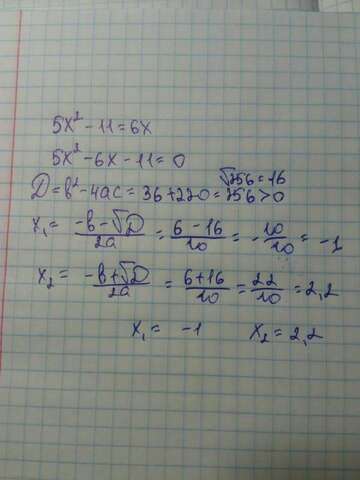 5x² - 11 = 6x
5x² - 6x - 11 = 0
√256 = 16
D = b² - 4ac = 36 + 220 = 256 > 0
x₁ = (-b - √D)/2a = (6 - 16)/10 = -10/10 = -1
x₂ = (-b + √D)/2a = (6 + 16)/10 = 22/10 = 2,2
x₁ = -1 x₂ = 2,2